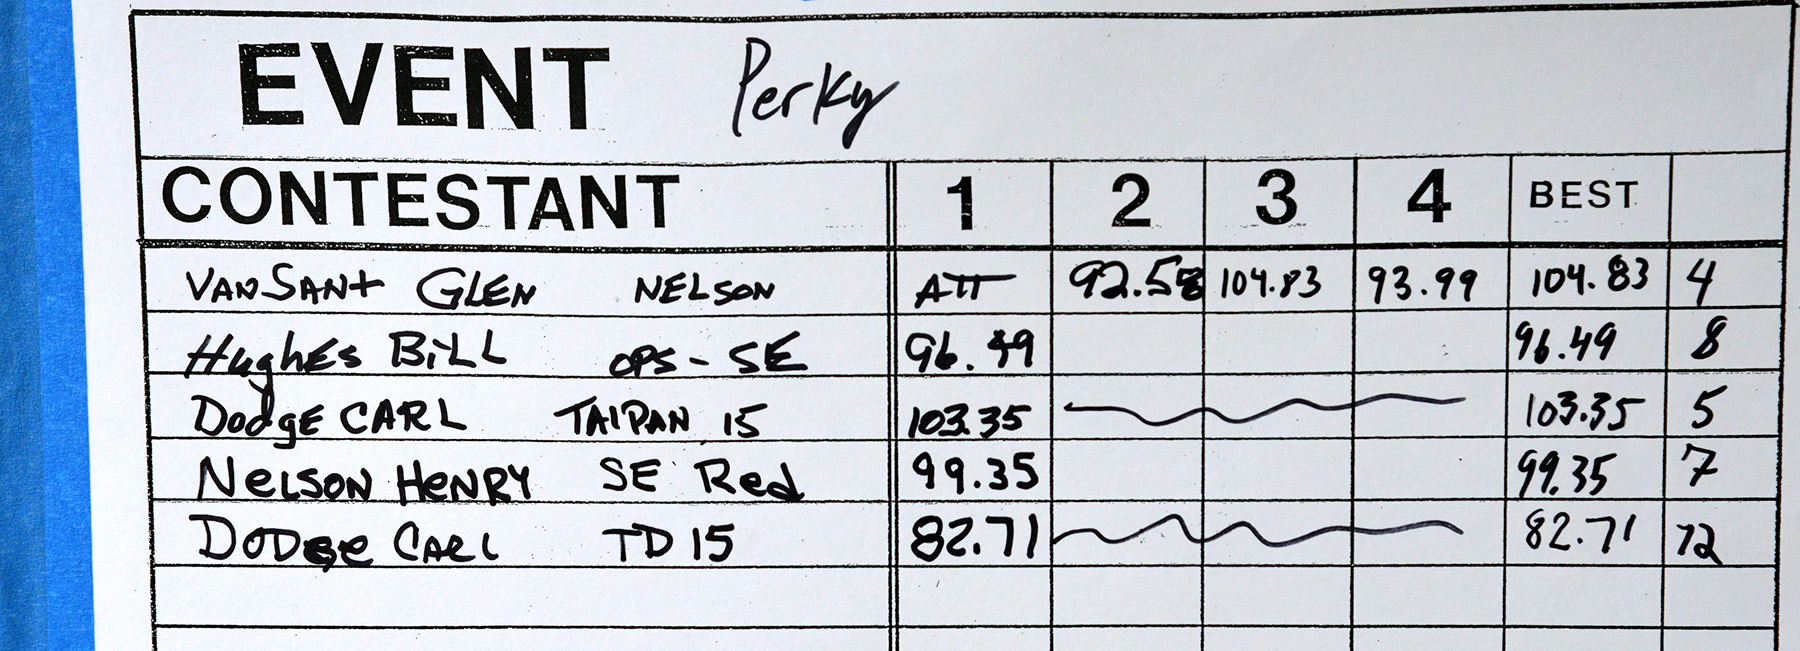 EVENT Perky
CONTESTANT 1 2 3 4 BEST
VANSANT GLEN NELSON ATT 92.58 104.83 93.99 104.83 4
HughES BILL OPS-SE 96.49 96.49 8
DodgE CARL TAIPAN 15 103.35 103.35 5
NELSON HENRY SE Red 99.35 99.35 7
DODGE CARL TD 15 82.71 82.71 12